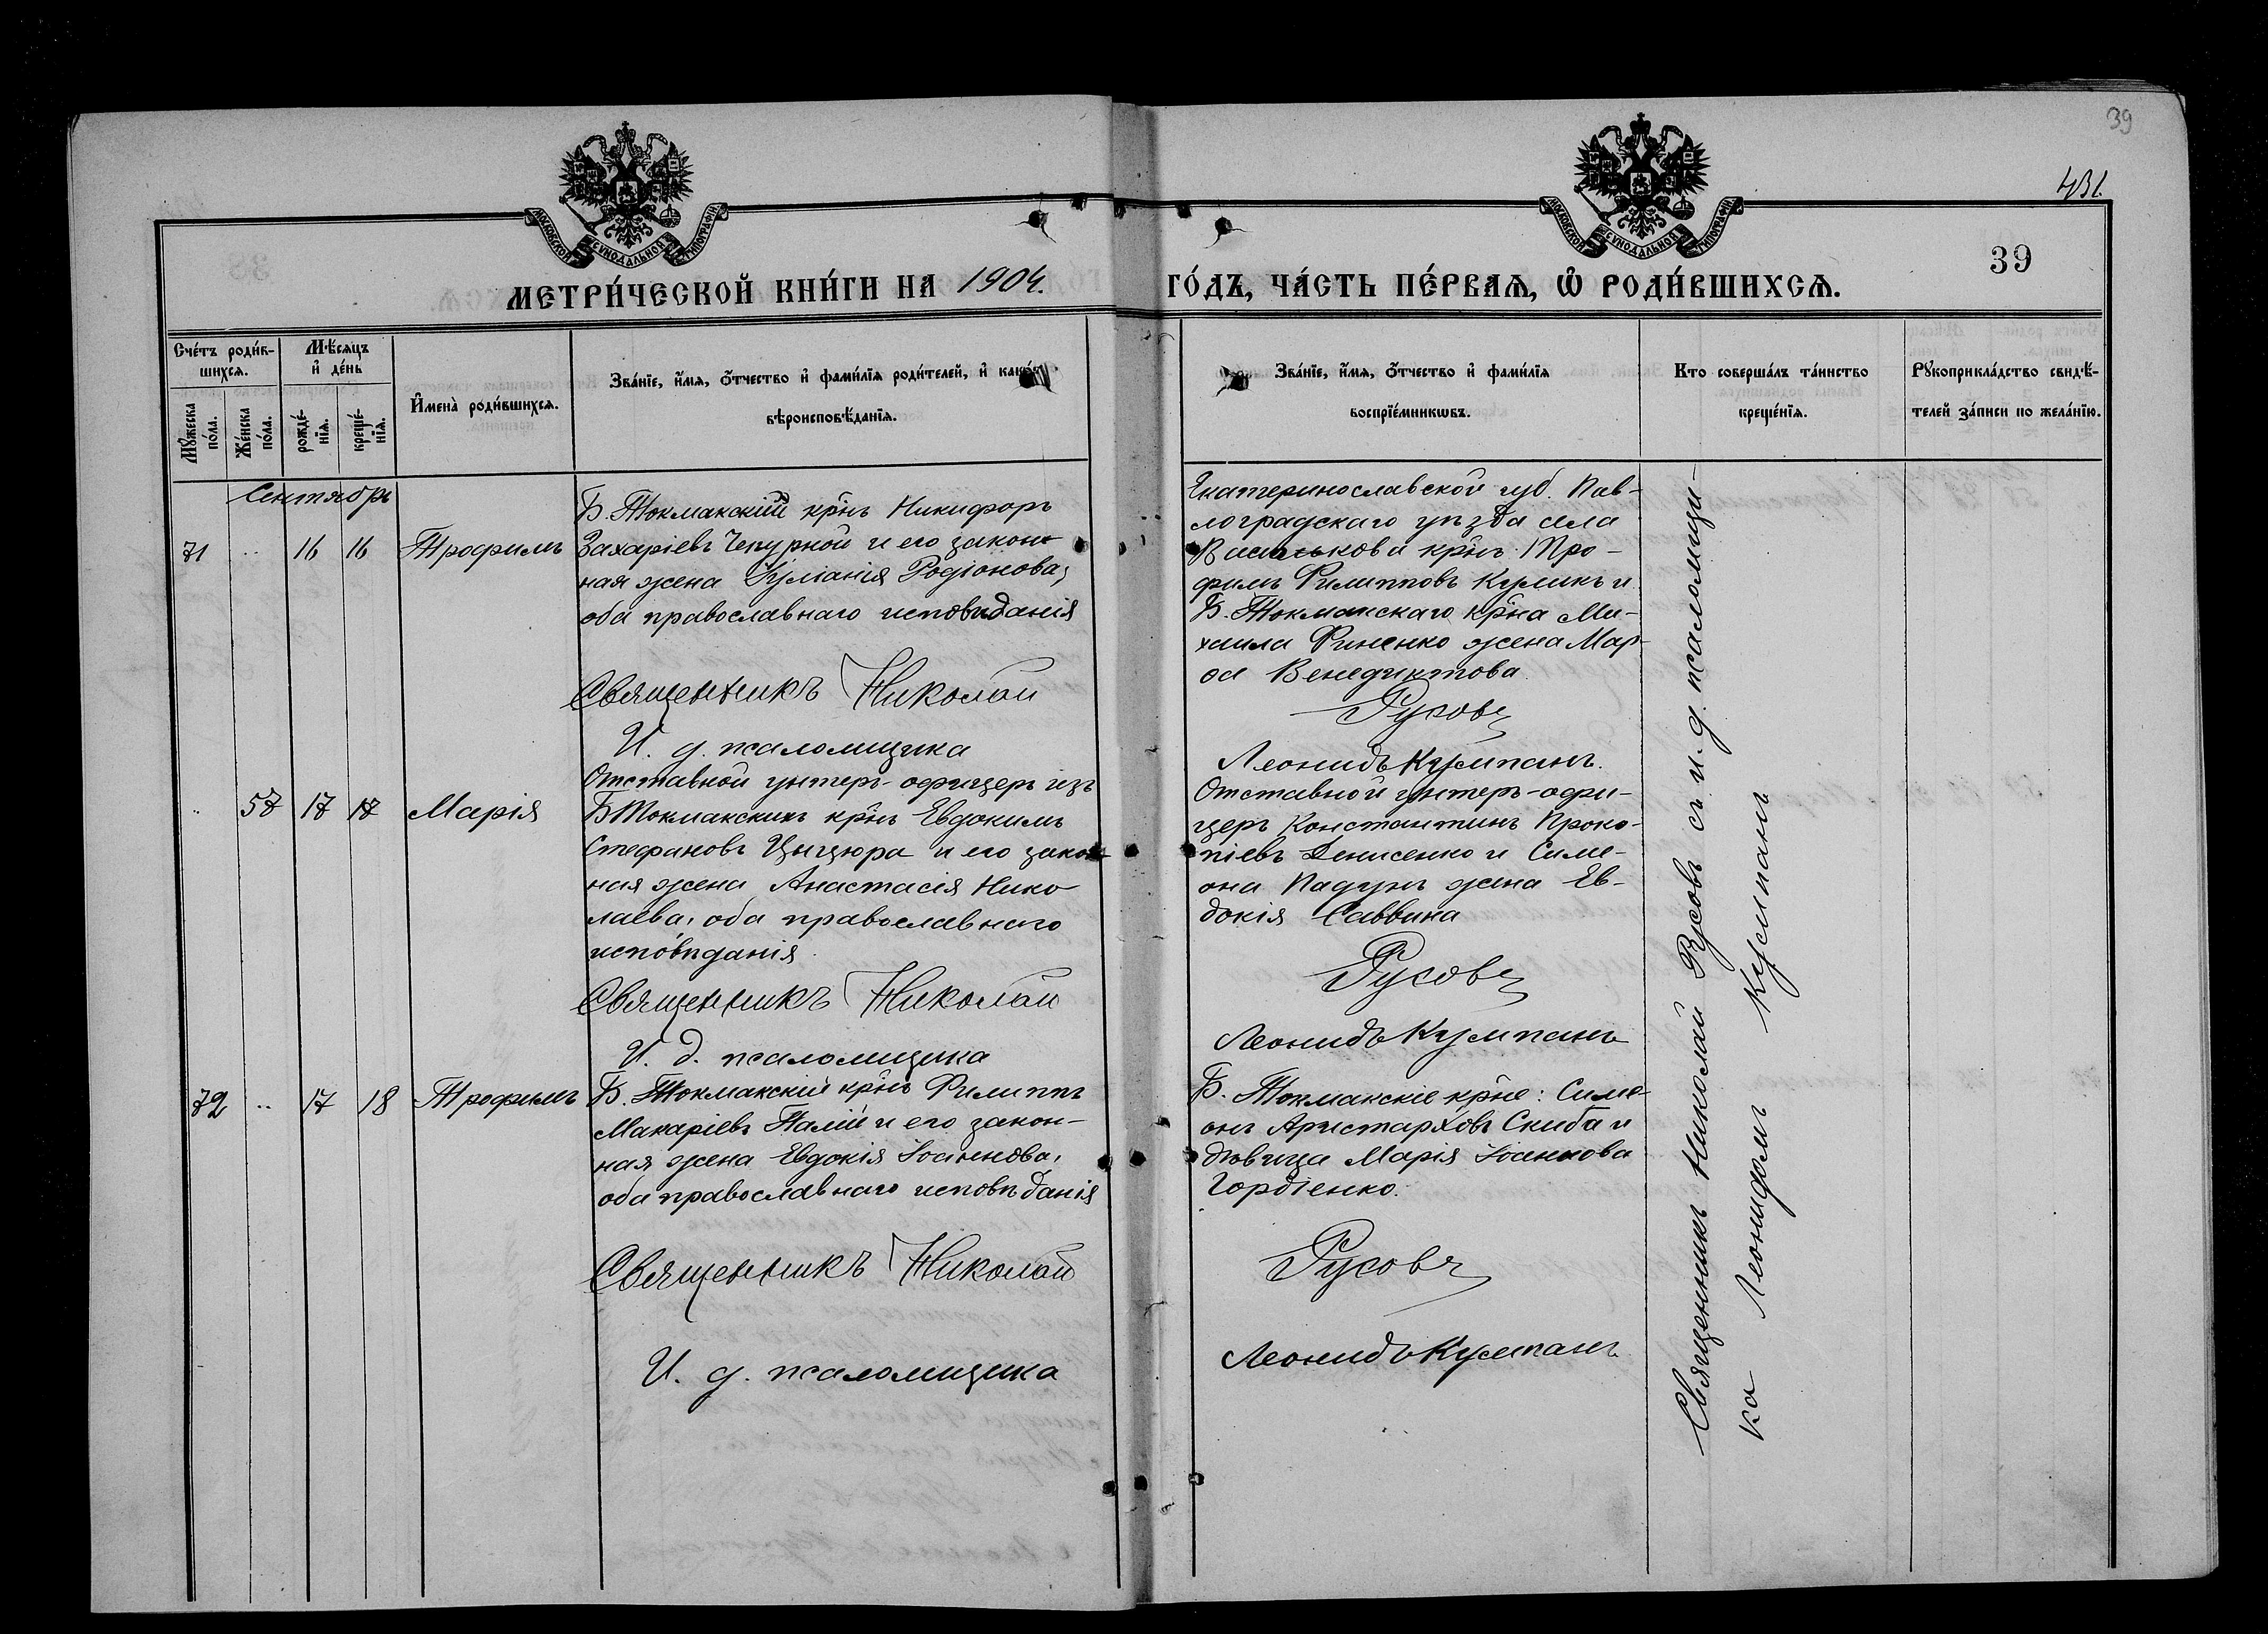 39
431.
МОСКОВСКОЙ СУНОДАЛЬНОЙ ТИПОГРАФІИ.
МОСКОВСКОЙ СУНОДАЛЬНОЙ ТИПОГРАФІИ.
39
МЕТРИ́ЧЕСКОЙ КНИ́ГИ НА 1904.
ГО́ДЪ, ЧА́СТЬ ПЕ́РВАѦ, Ѡ҆ РОДИ́ВШИХСѦ.
Сче́тъ роди́в-
шихсѧ.
Мꙋ́жеска по́ла.
Же́нска по́ла.
Мѣ́сѧцъ и҆ де́нь
рожде́-нїѧ.
креще́-нїѧ.
И҆мена̀ роди́вшихсѧ.
Зва́нїе, и҆́мѧ, ѻ҆́тчество и҆ фами́лїѧ роди́телей, и҆ како́гѡ
вѣроисповѣ́данїѧ.
Зва́нїе, и҆́мѧ, ѻ҆́тчество и҆ фами́лїѧ
воспрїе́мникѡвъ.
Кто соверша́лъ та́инство
креще́нїѧ.
Рꙋкоприкла́дство свидѣ́-
телей за́писи по жела́нїю.
Сентябрь
71 .. 16 16 Трофимъ
Б. Токмакскій крнъ Никифоръ
Захаріевъ Чепурной и его закон-
ная жена Іуліанія Родіонова,
оба православнаго исповѣданія
Священникъ Николай
И. д. псаломщика
Екатеринославской губ. Пав-
лоградскаго уѣзда села
Василькова крнъ Тро-
фимъ Филипповъ Куликъ и
Б. Токмакскаго крна Ми-
хаила Финенко жена Мар-
ѳа Венедиктова
Русовъ
Леонидъ Кулпанъ.
.. 57 17 17 Марія
Отставной унтеръ-офицеръ изъ
Б Токмакскихъ крнъ Евдокимъ
Стефановъ Цыцюра и его закон-
ная жена Анастасія Нико
лаева, оба православнаго
исповѣданія.
Священникъ Николай
И. д. псаломщика
Отставной унтеръ-офи-
церъ Константинъ Проко-
піевъ Денисенко и Симе-
она Падунъ жена Ев-
докія Саввина
Русовъ
Леонидъ Кулпанъ
72 .. 17 18 Трофимъ
Б. Токмакскій крнъ Филиппъ
Макаріевъ Палій и его закон-
ная жена Евдокія Іоаннова,
оба православнаго исповѣданія
Священникъ Николай
И. д. псаломщика
Б. Токмакскіе крне: Симе-
онъ Аристарховъ Скиба и
дѣвица Марія Іоаннова
Гордіенко.
Русовъ
Леонидъ Кулпанъ
Священникъ Николай Русовъ съ и. д. псаломщи-
ка Леонидомъ Кулпанъ